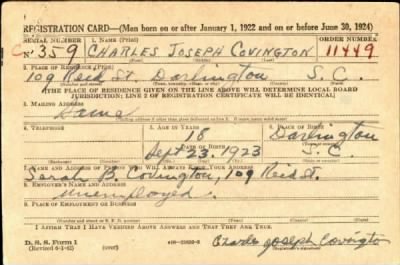 REGISTRATION CARD—(Men born on or after January 1, 1922 and on or before June 30, 1924)
SERIAL NUMBER 1. NAME (Print) ORDER NUMBER
N° 359 CHARLES JOSEPH COVINGTON 11449
2. PLACE OF RESIDENCE (Print)
109 Reid St. Darlington S. C.
[THE PLACE OF RESIDENCE GIVEN ON THE LINE ABOVE WILL DETERMINE LOCAL BOARD
JURISDICTION; LINE 2 OF REGISTRATION CERTIFICATE WILL BE IDENTICAL]
3. MAILING ADDRESS
Same
4. TELEPHONE 5. AGE IN YEARS 6. PLACE OF BIRTH
18 Darlington
DATE OF BIRTH
Sept 23, 1923 S. C.
7. NAME AND ADDRESS OF PERSON WHO WILL ALWAYS KNOW YOUR ADDRESS
Sarah B. Covington, 109 Reid St.
8. EMPLOYER'S NAME AND ADDRESS
Unemployed.
9. PLACE OF EMPLOYMENT OR BUSINESS
I AFFIRM THAT I HAVE VERIFIED ABOVE ANSWERS AND THAT THEY ARE TRUE.
D. S. S. Form 1
(over)
Charles Joseph Covington